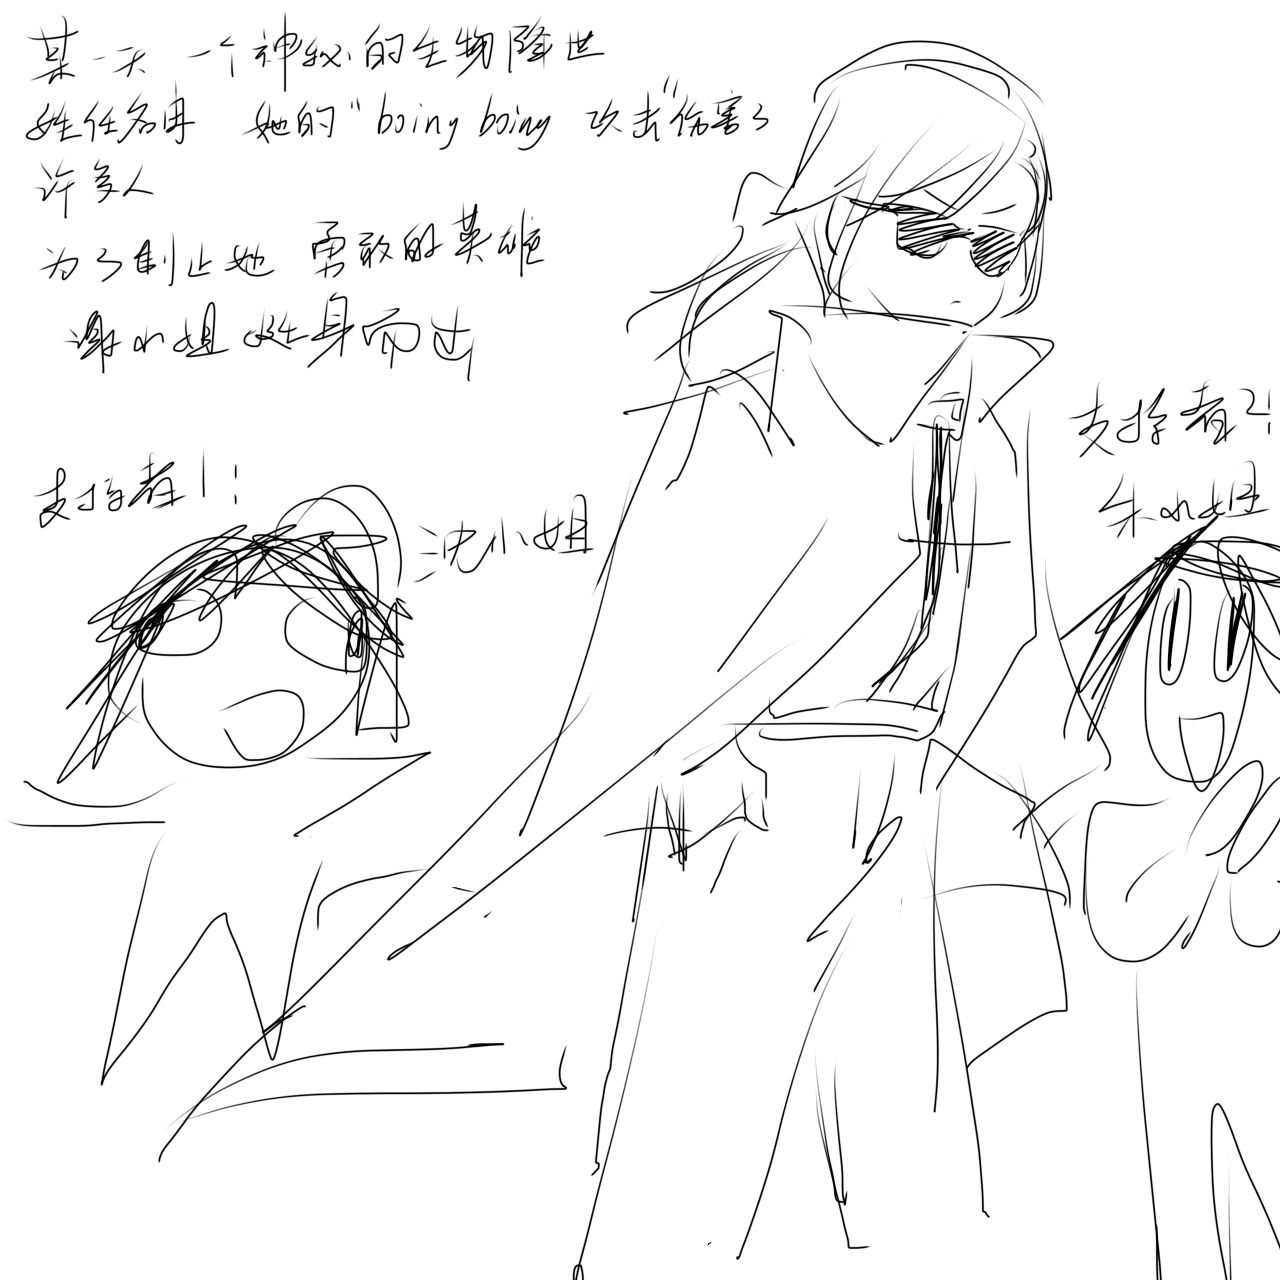 某一天 一个神秘的生物降世
姓任名冉 她的"boing boing 攻击"伤害了
许多人
为了制止她 勇敢的英雄
谢小姐 挺身而出
支持者1:
沈小姐
支持者2:
朱小姐